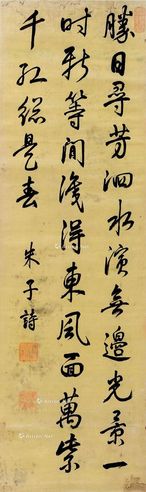 勝日尋芳泗水濱無邊光景一
時新等閒識得東風面萬紫
千紅總是春
朱子詩